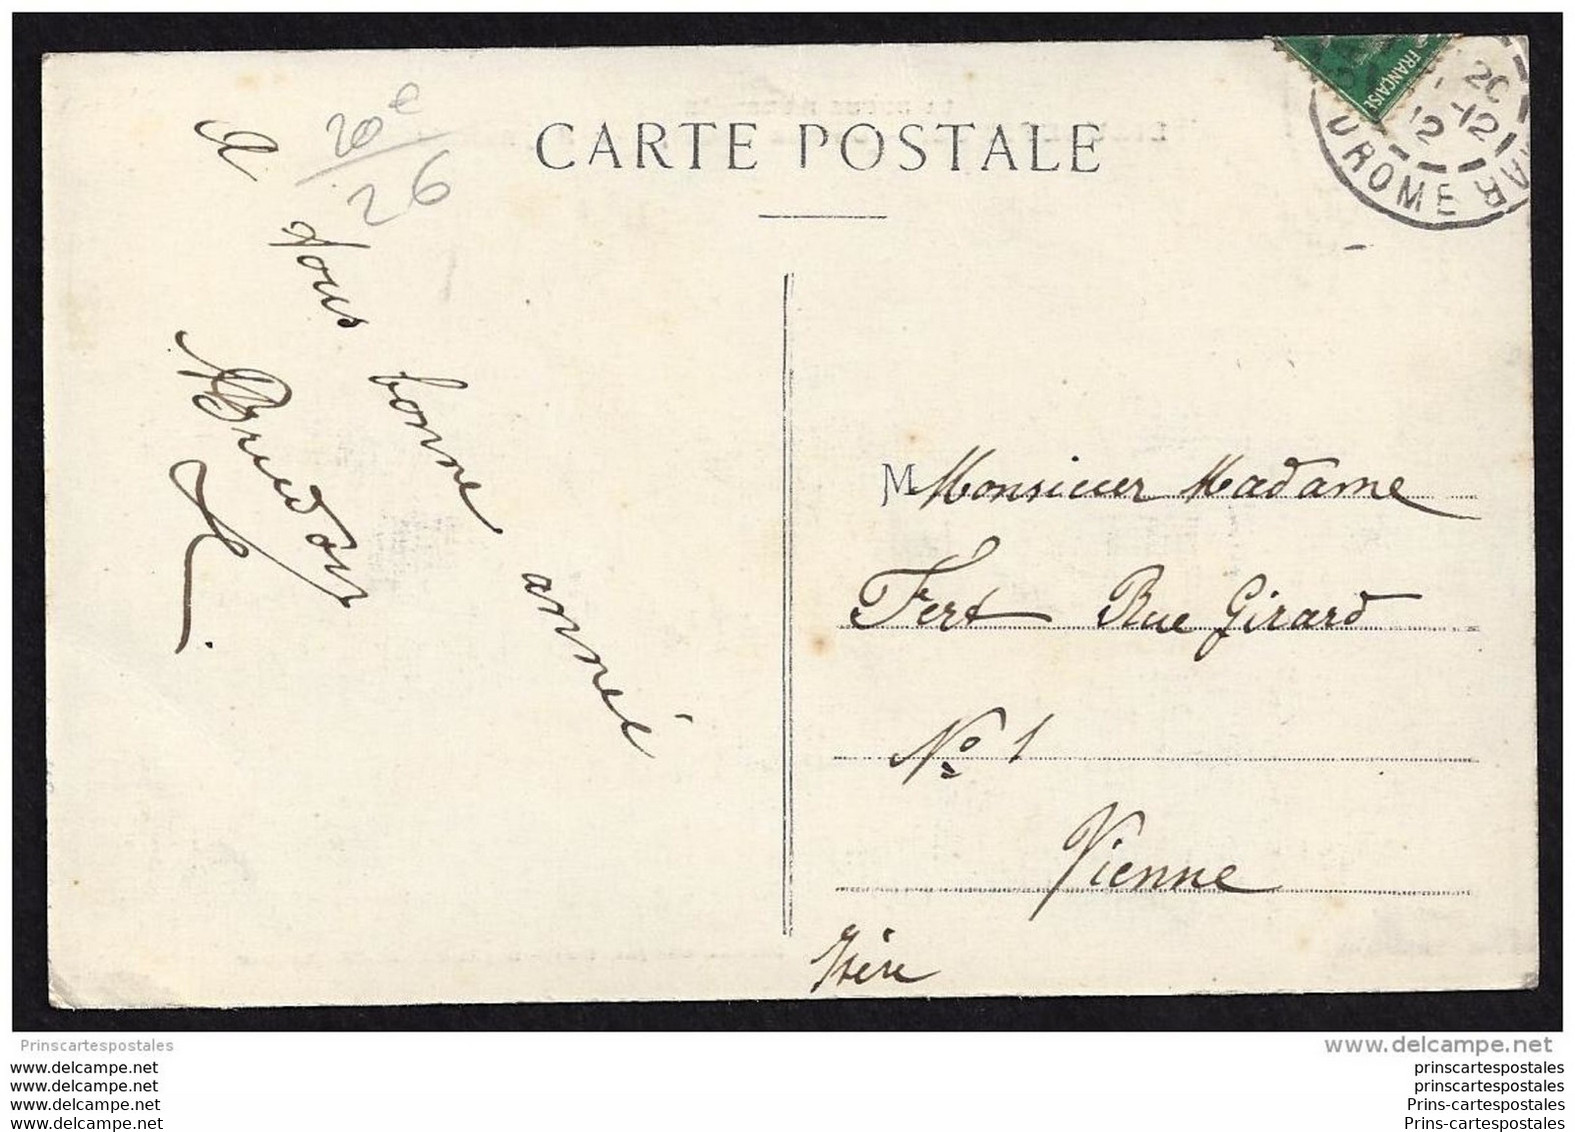 CARTE POSTALE
FRANÇAISE
20
12 -12
DROME
20e
26
A
Vous
bonne
année
M Monsieur Madame
Fert Rue Girard
No 1
Vienne
Isère
Prinscartespostales
www.delcampe.net
www.delcampe.net
www.delcampe.net
www.delcampe.net
www.delcampe.net
prinscartespostales
prinscartespostales
Prins-cartespostales
Prins-cartespostales